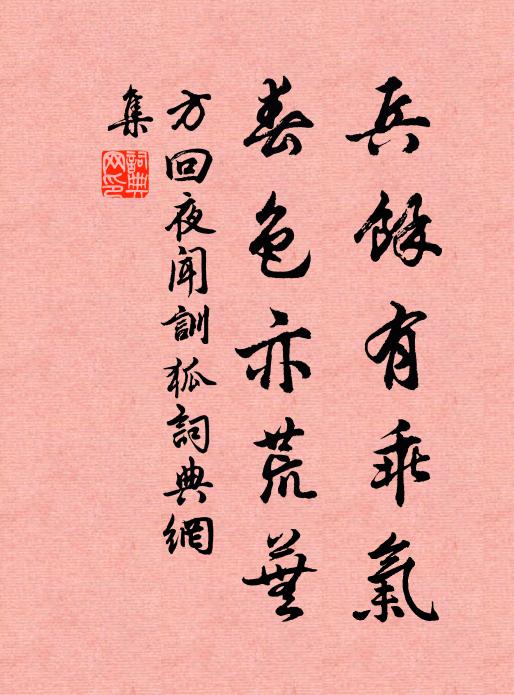 兵餘有乖氣
春色亦荒蕪
方回夜聞訓狐詞典網
集
詞典
网印